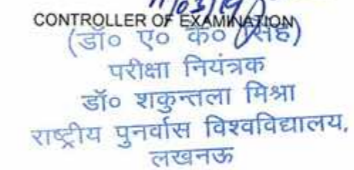 11/03/19
CONTROLLER OF EXAMINATION
(डॉ० ए० के० सिंह)
परीक्षा नियंत्रक
डॉ० शकुन्तला मिश्रा
राष्ट्रीय पुनर्वास विश्वविद्यालय,
लखनऊ